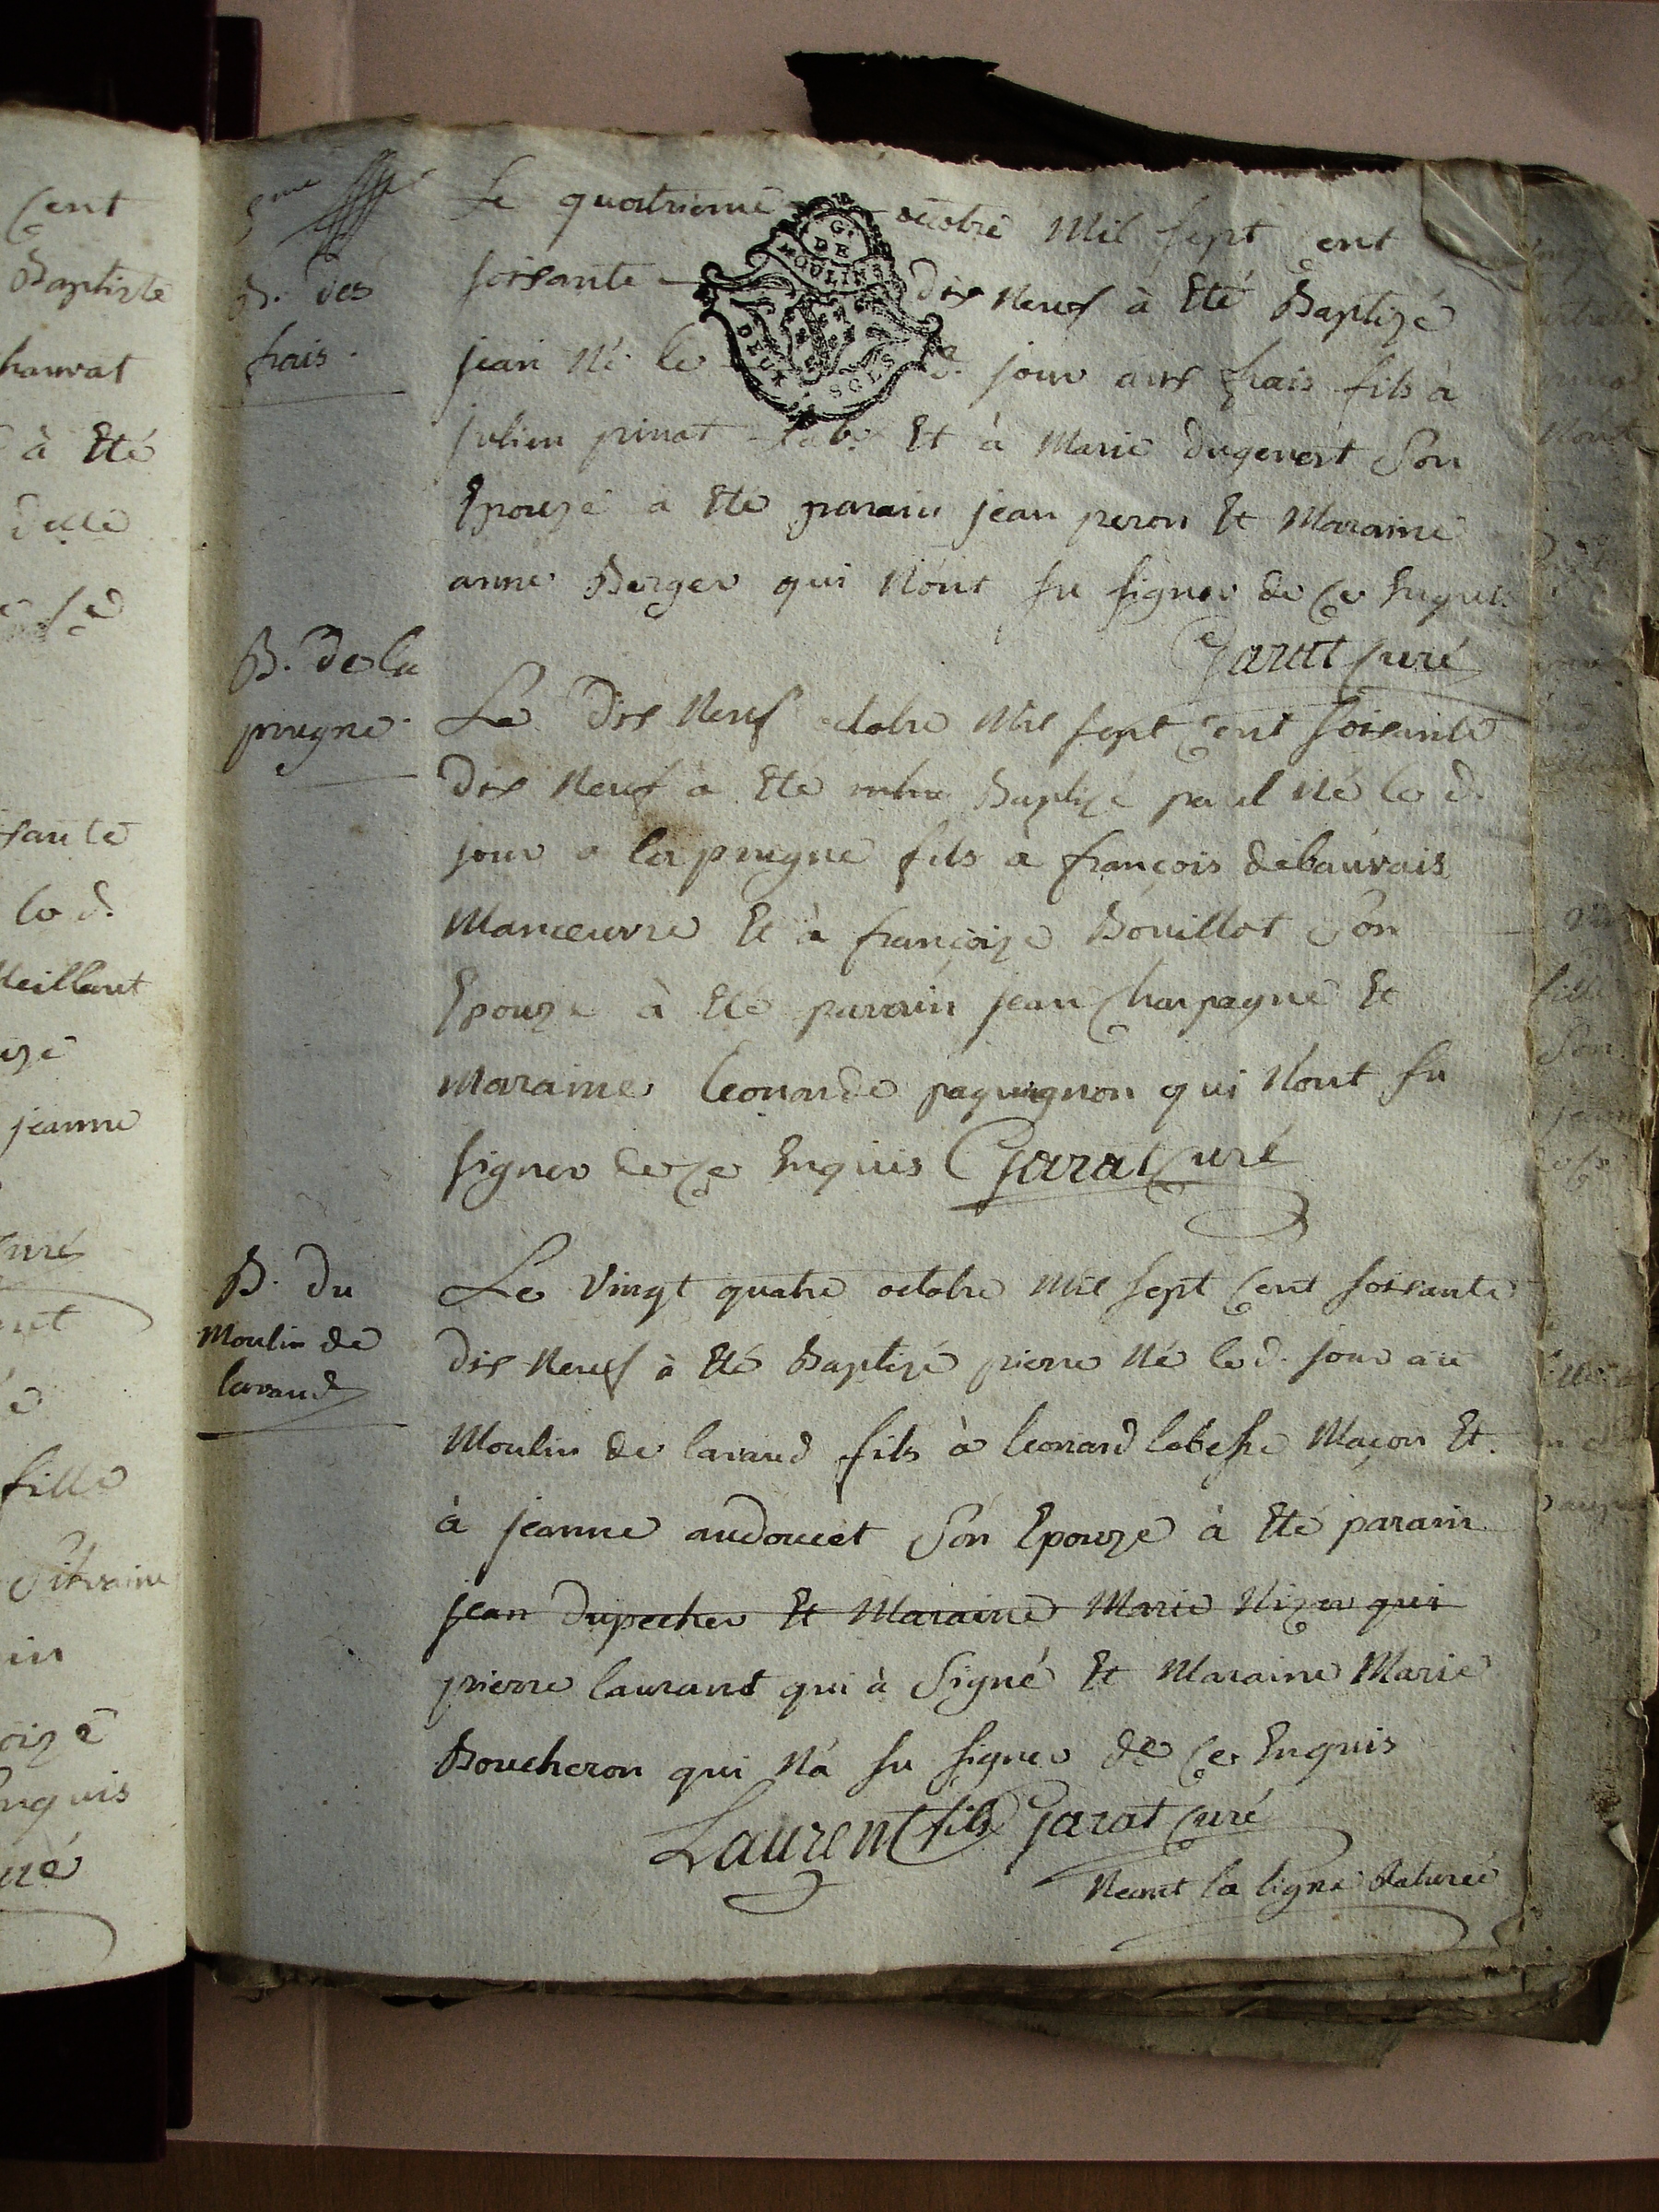 Cent
Baptizte
hauvat
à Eté
delle
sante
le d.
Meillant
jeanne
curé
fille
Silvaine
in
oize
Enquis
curé
5me
B. des
frais.
Le quatrieme octobre Mil sept Cent
soixante dix Neuf à Eté Baptizé
jean Né le d. jour aux frais fils à
julien pinat lab. Et à Marie dugenest Son
Epouze à Eté parain jean peron Et Maraine
anne Berger qui N'ont su signer de Ce Enquis
Garat Curé
G. DE MOULINS
DEUX SOLS
B. de la
prugne
Le Dix Neuf octobre Mil sept Cent soixante
Dix Neuf à Eté Baptizé paul Né le d.
jour a la prugne fils à françois debauvais
Manœuvre Et à françoize Bouillot Son
Epouze à Eté parain jean Charpagne Et
Maraine leonarde paquignon qui Nont su
signer de Ce Enquis Garat Curé
B. du
Moulin de
lavaud
Le Vingt quatre octobre Mil sept Cent soixante
dix Neuf à Eté Baptizé pierre Né le d. jour au
Moulin de lavaud fils à leonard labesse Maçon Et
à jeanne audoucet Son Epouze à Eté parain
jean dupecher Et Maraine Marie qui
pierre laurant qui à Signé Et Maraine Marie
Boucheron qui N'a su signer de Ce Enquis
Laurent fils Garat Curé
Neant la ligne Raturée